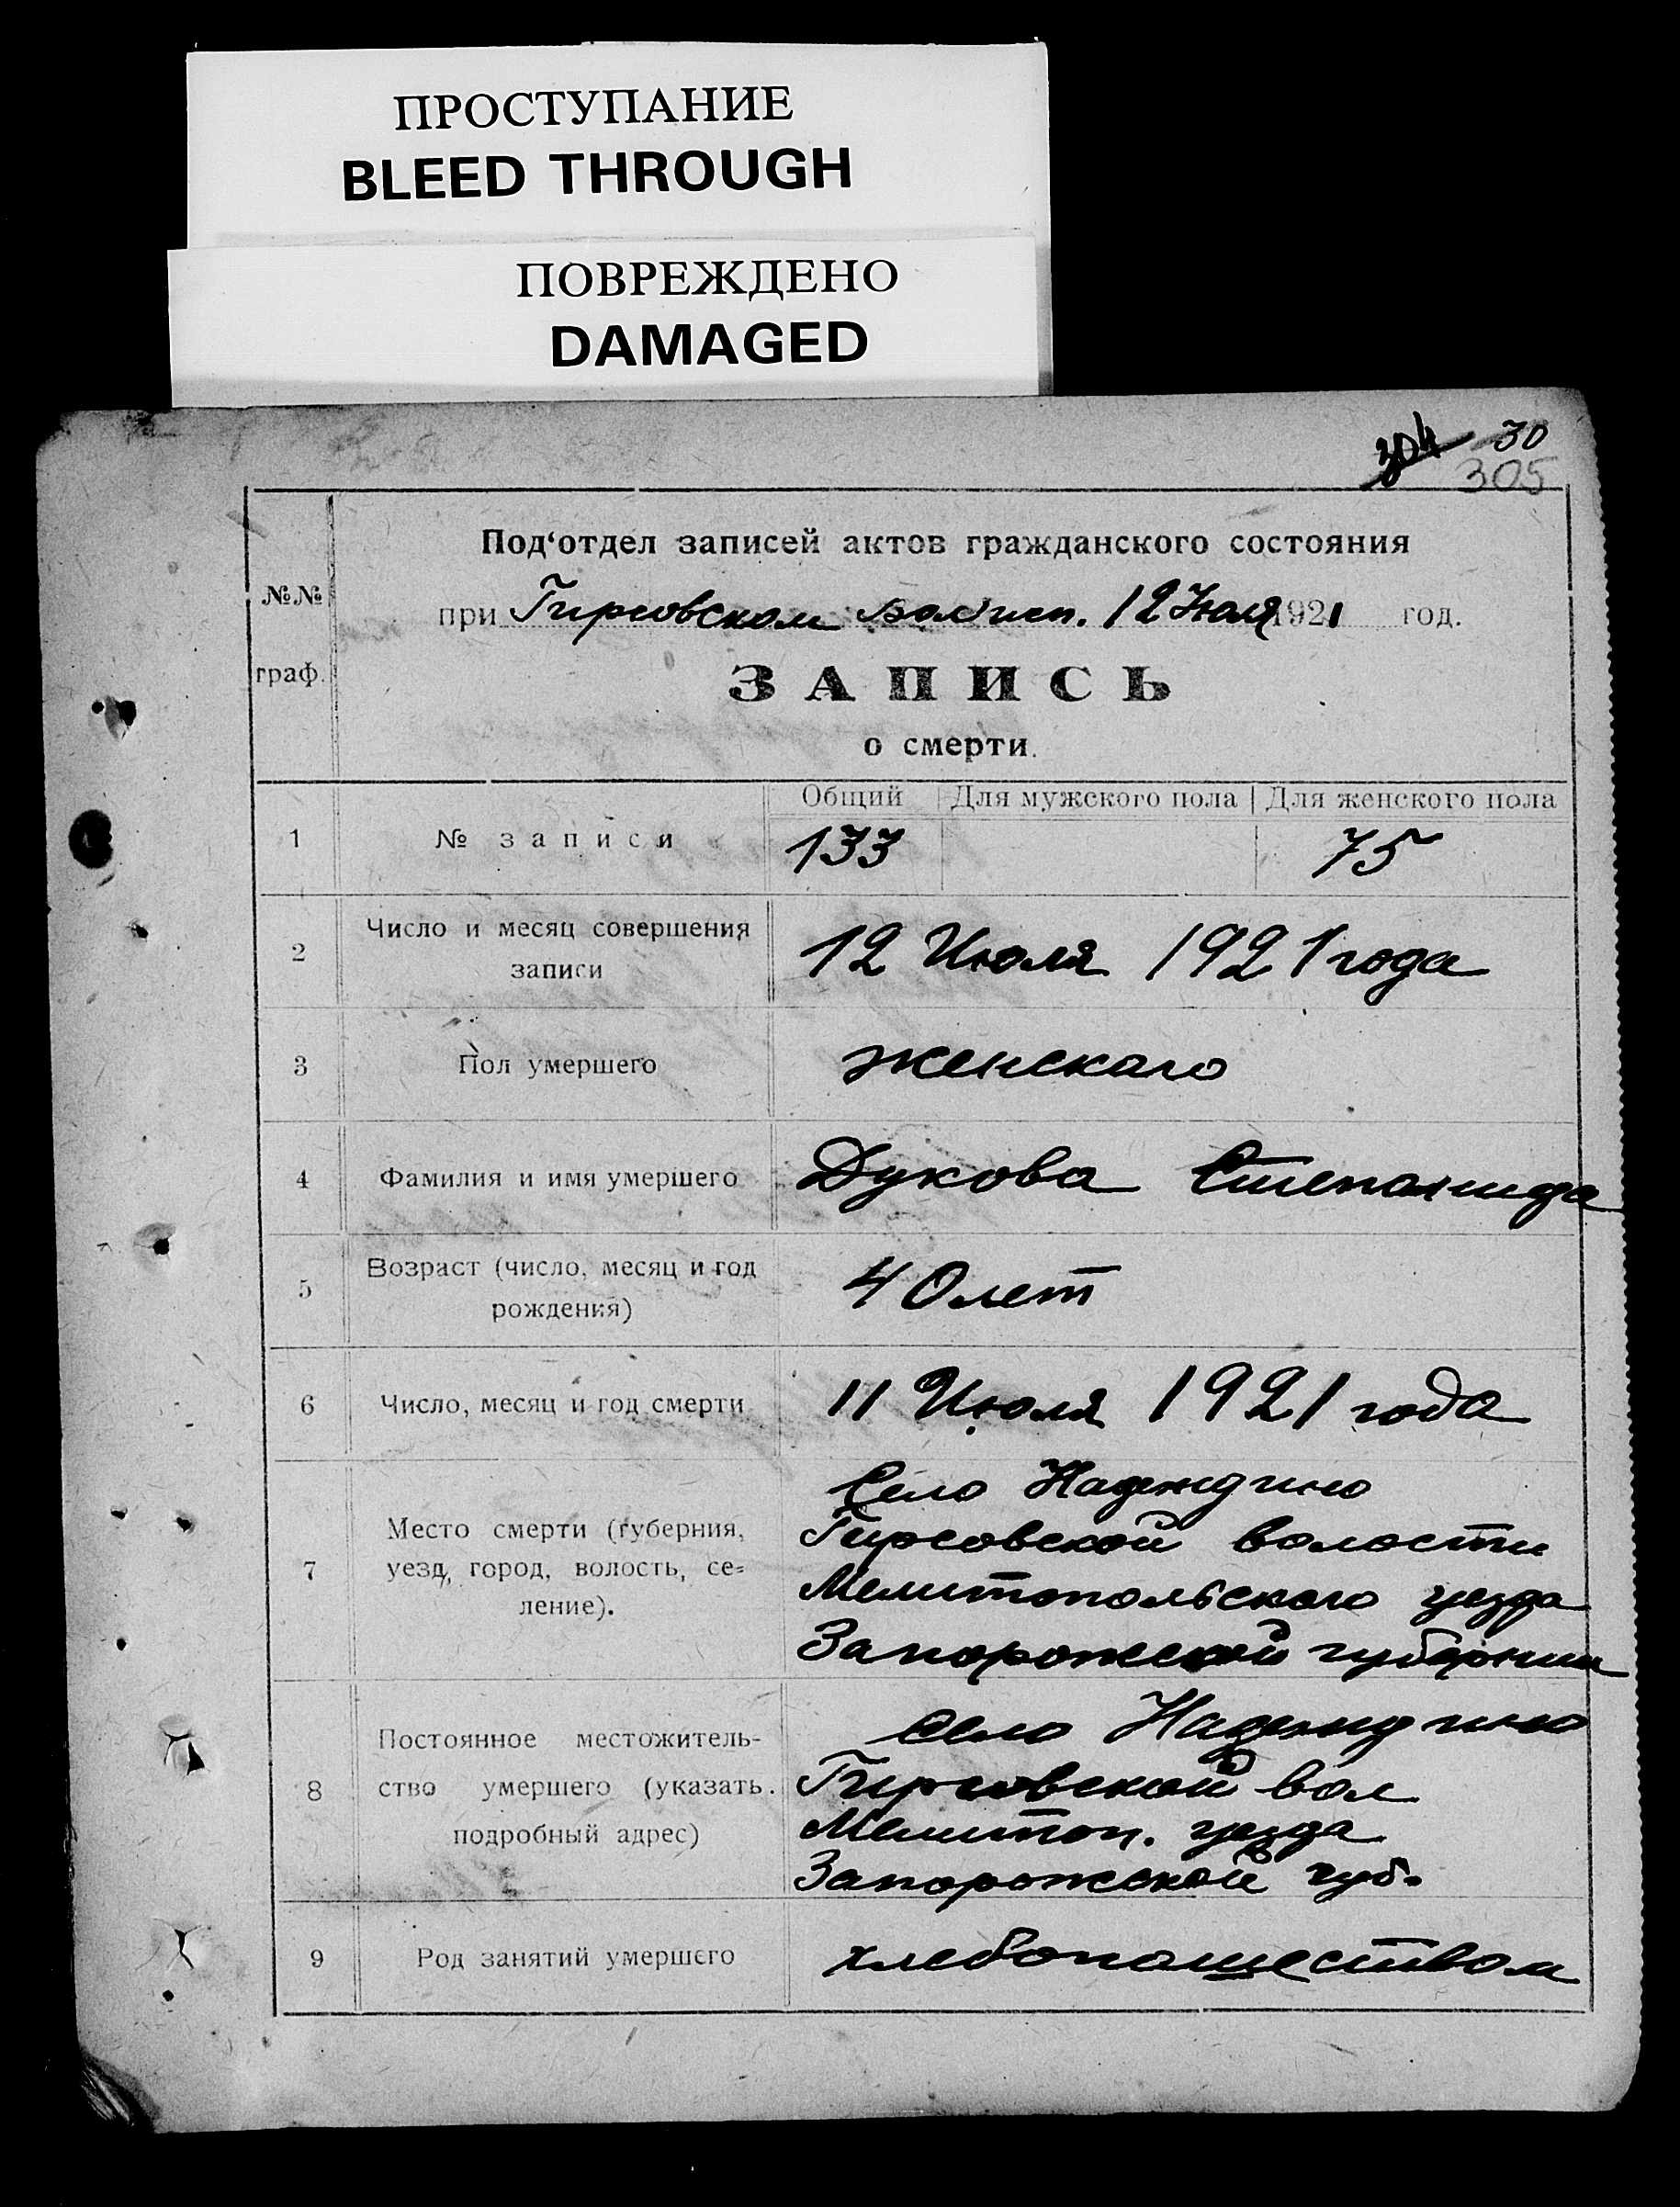 ПРОСТУПАНИЕ
BLEED THROUGH
ПОВРЕЖДЕНО
DAMAGED
304 30
305
Под‘отдел записей актов гражданского состояния
№№
при Гирсовском Волисп. 12 Июля 1921 год.
граф.
ЗАПИСЬ
о смерти.
Общий Для мужского пола Для женского пола
1 № записи 133 75
2 Число и месяц совершения
записи 12 Июля 1921 года
3 Пол умершего женскаго
4 Фамилия и имя умершего Дукова Степанида
5 Возраст (число, месяц и год
рождения) 40 лет
6 Число, месяц и год смерти 11 Июля 1921 года
7 Место смерти (губерния,
уезд, город, волость, се=
ление).
Село Надеждино
Гирсовской волости
Мелитопольского уезда
Запорожской губернии
8 Постоянное местожитель-
ство умершего (указать
подробный адрес)
село Надеждино
Гирсовской вол
Мелитоп. уезда
Запорожской губ.
9 Род занятий умершего хлебопашеством